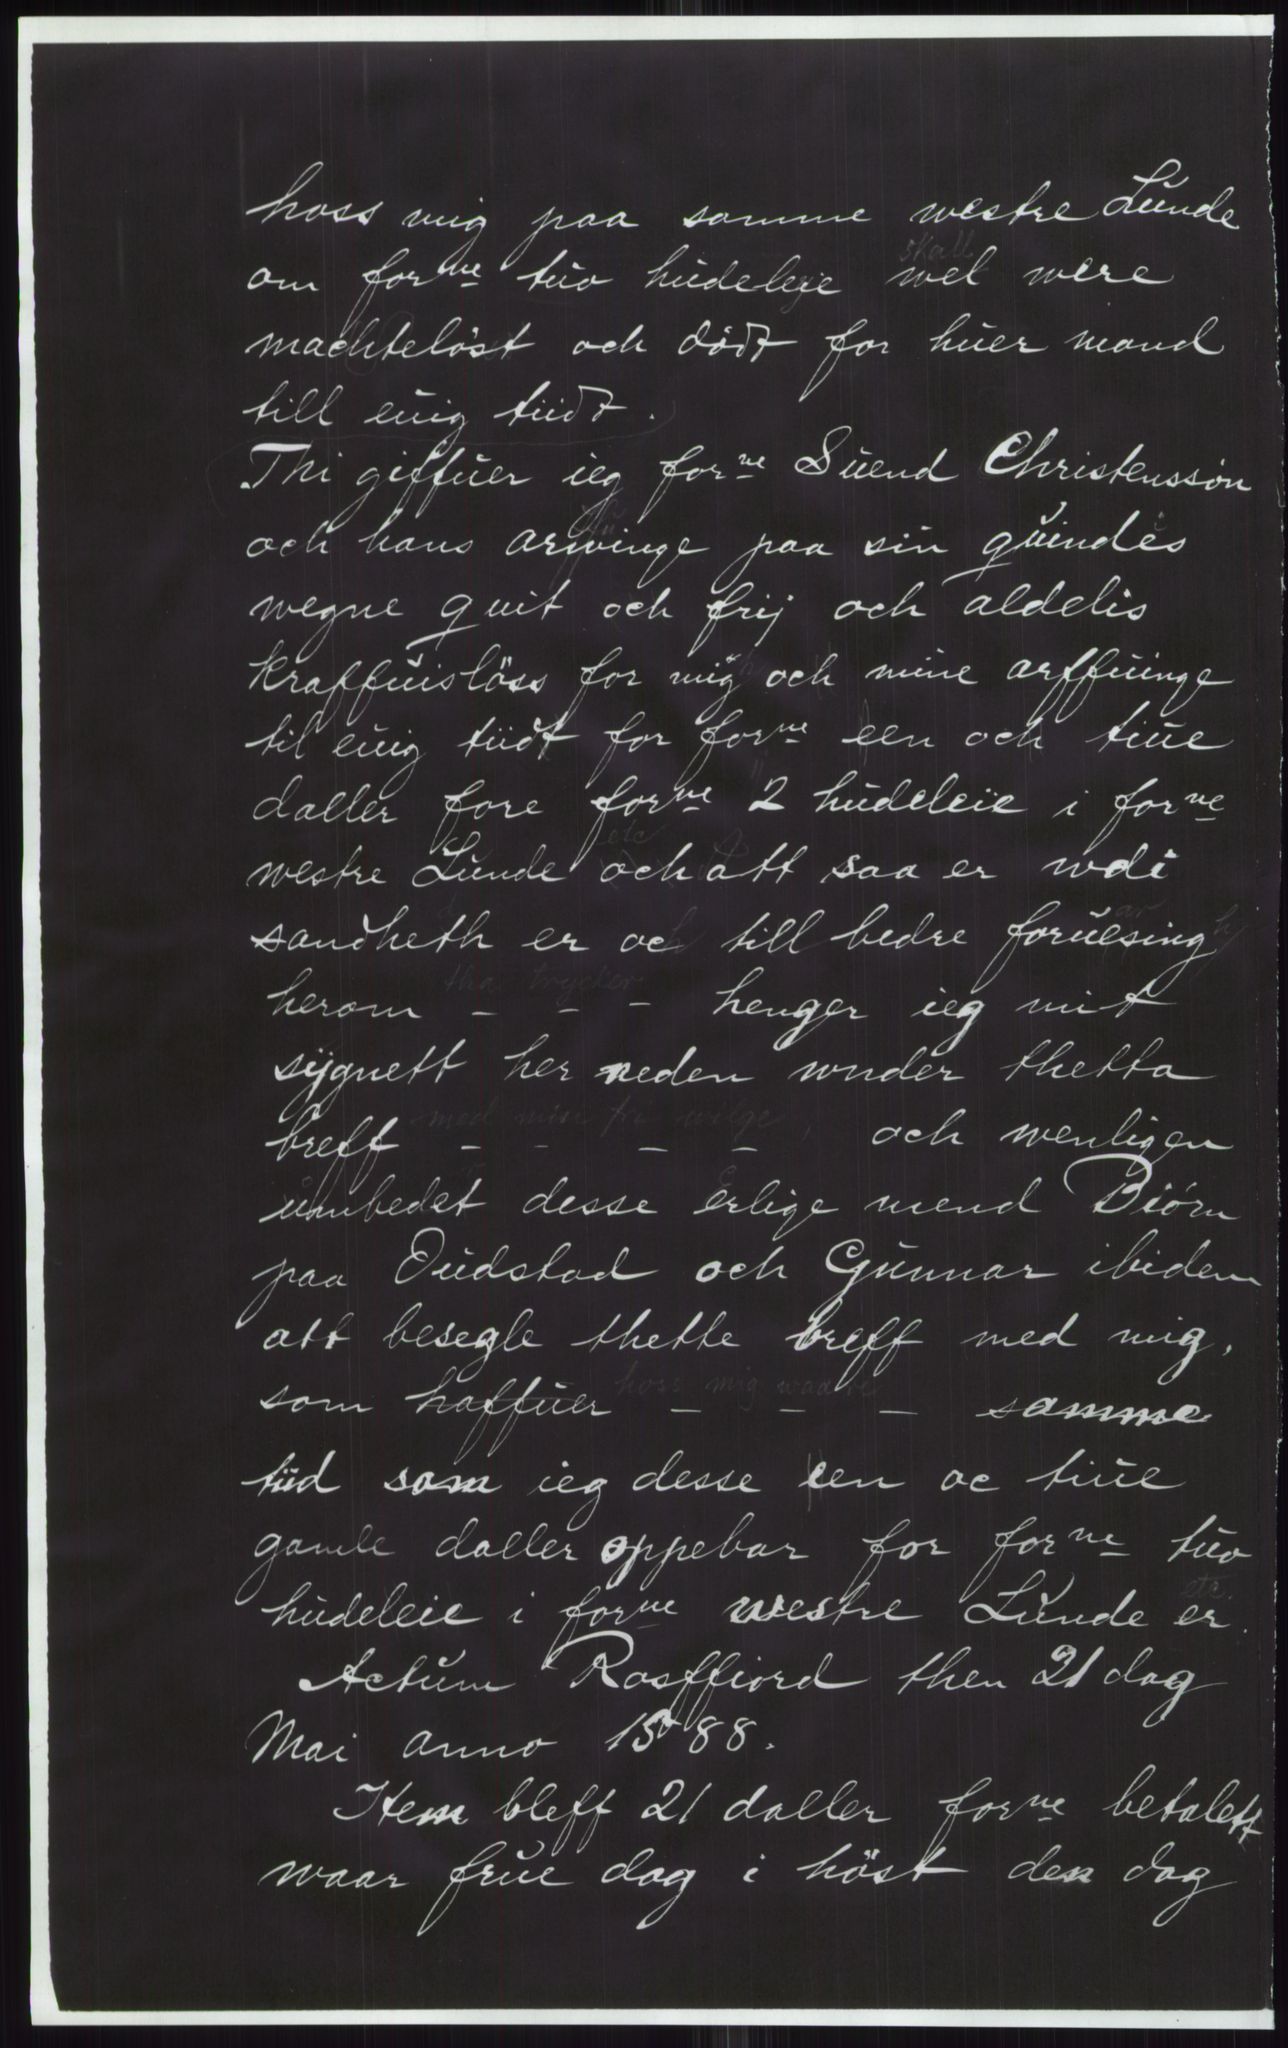 hoss mig paa somme westre Lünde
skall
om forⁿᵉ tüo hüdeleje wel were
machtelöst och dødt for hüer mand
till euig tiidt.
Thi giffuer ieg forⁿᵉ Süend Christenssön
och hans arwinge paa sin qüindes
wegne quit och frij och aldelis
kraffüislöss for mig och mine arffüinge
til euig tiidt for forⁿᵉ een och tiüe
daller fore forⁿᵉ 2 hüdeleie i forⁿᵉ
etc
westre Lünde och att saa er wdi
sandheth er och till bedre foruesing
tha trycker
herom - - - henger ieg mit
sÿgnett her neden wnder thetta
med min fri wilge
breff - - - - och wenligen
ümbedet desse erlige mend Biörn
paa Oüdstad och Günnar ibidem
att besegle thette breff med mig,
hoss mig waaret
som haffüer - - - samme
tiid som ieg desse een oc tiüe
gamle daller oppebar for forⁿᵉ tüo
etc.
hüdeleie i forⁿᵉ westre Lünde er.
Actüm Rosffiord then 21 dag
Mai anno 1588.
Item bleff 21 daller forⁿᵉ betalett
waar früe dag i höst den dag